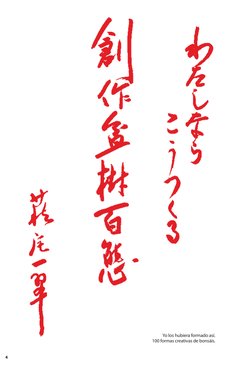 わたしなら
こうつくる
創作盆樹百態
萩尾一翠
Yo los hubiera formado así,
100 formas creativas de bonsáis.
4